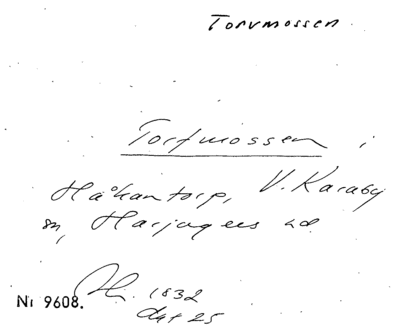 Torvmossen.
Torfmossen i
Håkantorp, V. Karaby
sn, Harjagers hd.
1832
akt 25
Nr 9608.